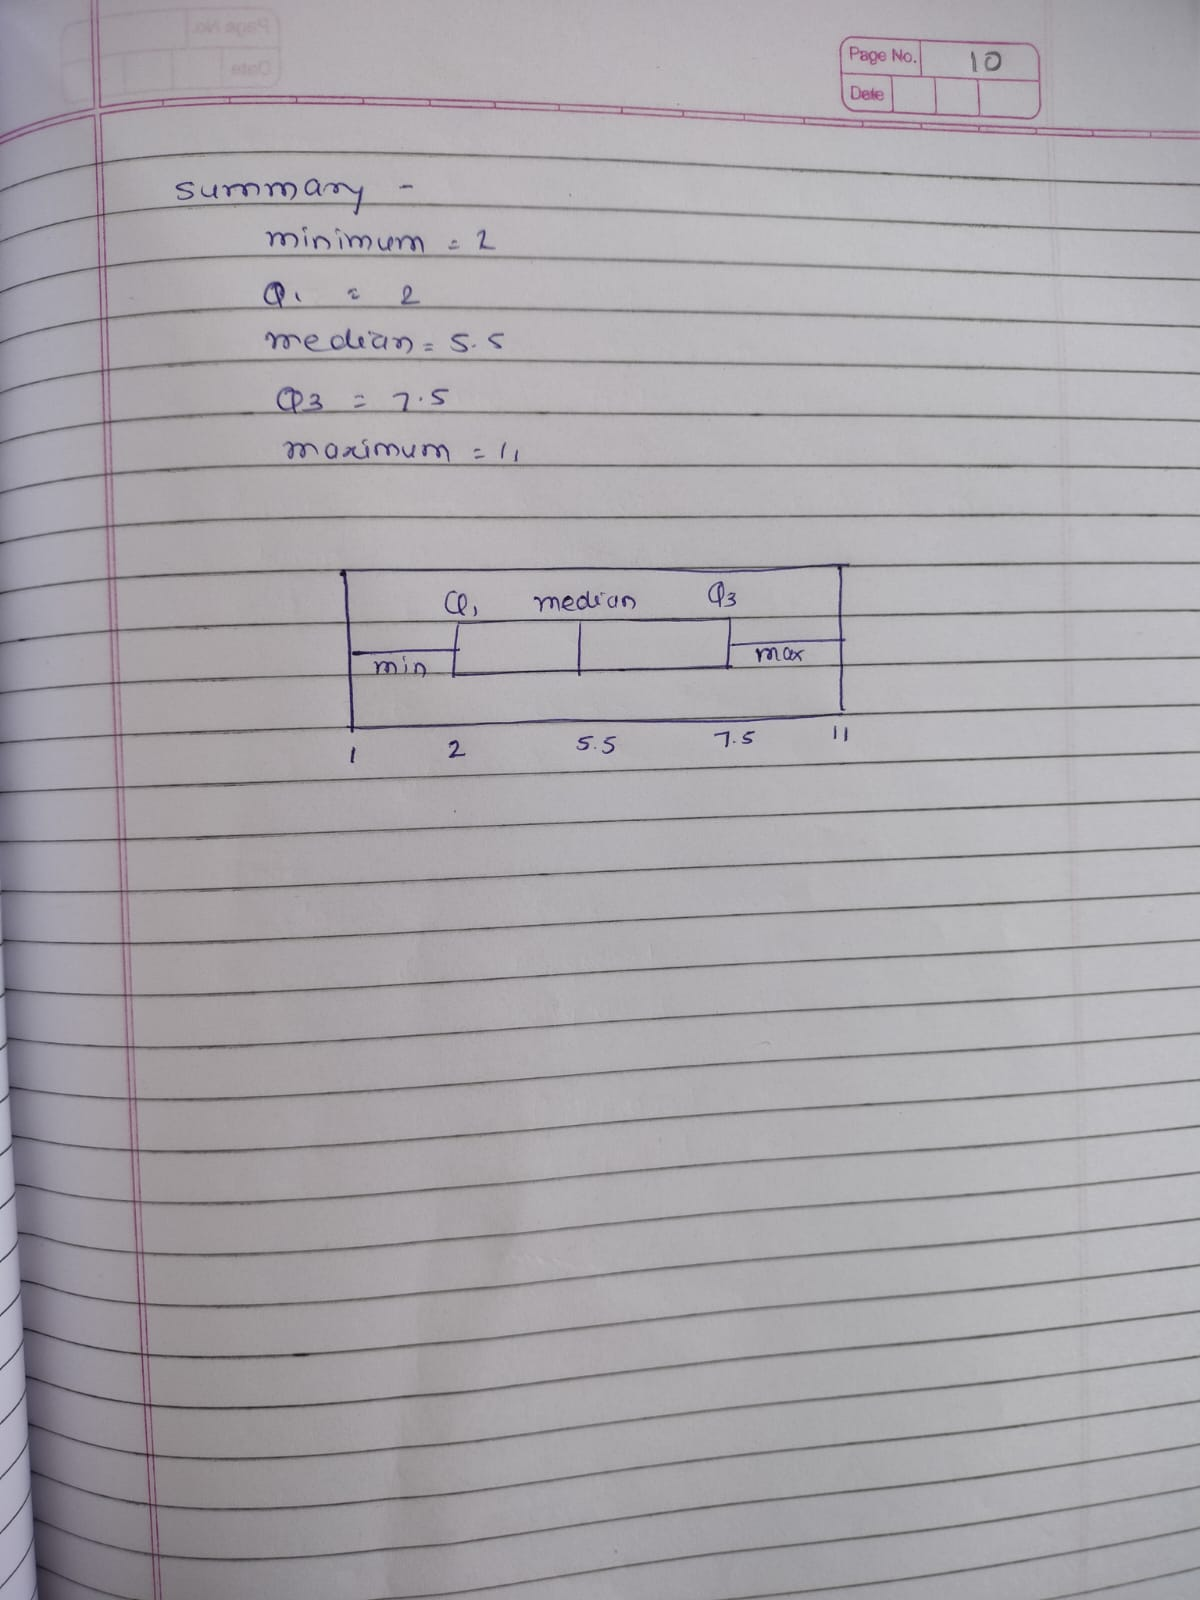 Page No. 10
Date
summary -
minimum = 2
Q1 = 2
median = 5.5
Q3 = 7.5
maximum = 11
Q1 median Q3
min max
1 2 5.5 7.5 11